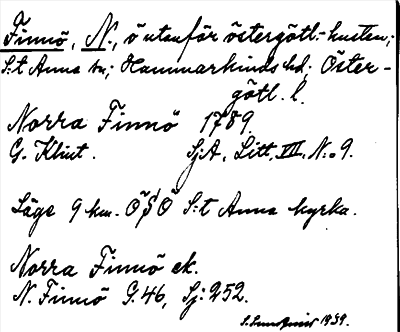 Finnö, N., ö utanför östergötl.-kusten;
S:t Anna sn; Hammarkinds hd; Öster-
götl. l.
Norra Finnö 1789.
G. Klint. SjA, Litt. VII, N:o 9.
Läge 9 km. ÖSÖ S:t Anna kyrka.
Norra Finnö ek.
N. Finnö G. 46, Sj: 252.
1939.